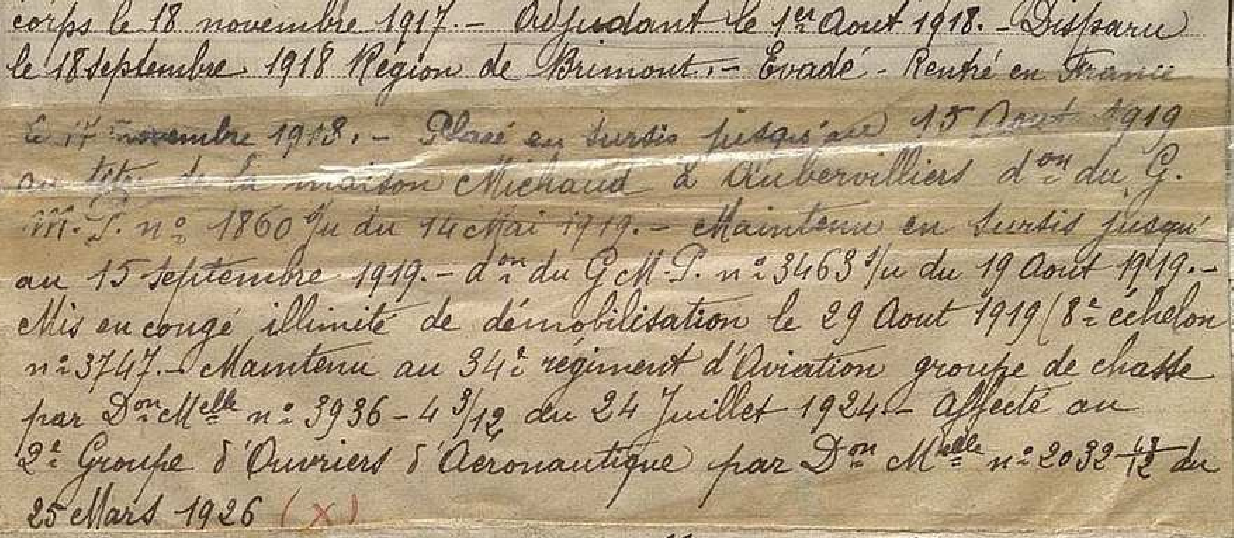 corps le 18 novembre 1917. - Adjudant le 1er Aout 1918. - Disparu
le 18 septembre 1918 Région de Brimont. - Evadé - Rentré en France
le 17 novembre 1918. - Placé en sursis jusqu'au 15 Aout 1919
au titre de la maison Michaud à Aubervilliers don du G.
M.P. no 1860 1/u du 14 Mai 1919. - Maintenu en sursis jusqu'
au 15 septembre 1919. - don du G M-P. no 3463 1/u du 19 Aout 1919. -
Mis en congé illimité de démobilisation le 29 Aout 1919 (8e échelon
no 3747. - Maintenu au 34e régiment d'Aviation groupe de chasse
par Don Melle no 3936 - 4 3/12 du 24 Juillet 1924 - Affecté au
2e Groupe d'Ouvriers d'Aéronautique par Don Melle no 2032 du
25 Mars 1926 (X)